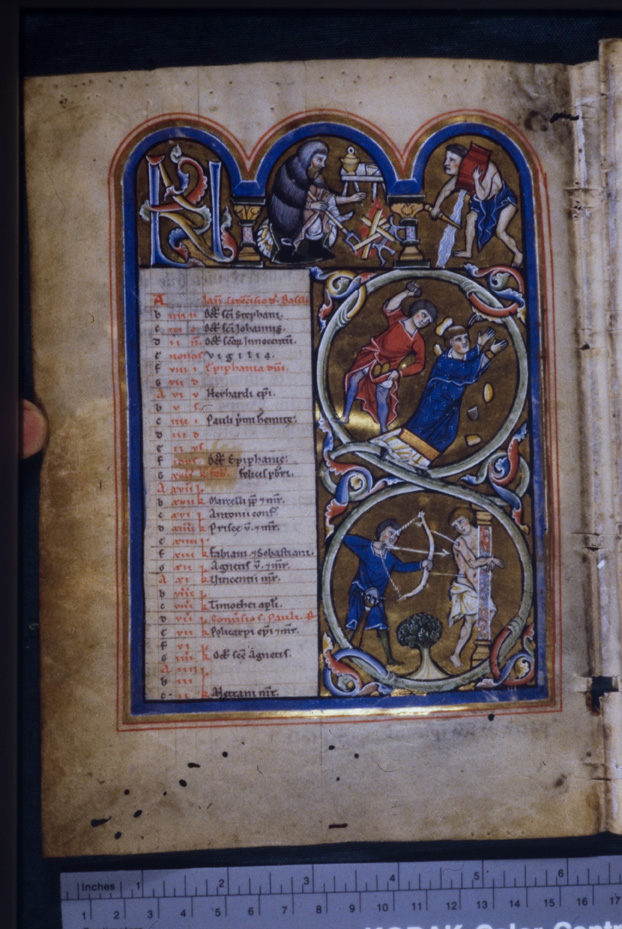 KL
A Jan. Circūcisio d. Basilii
b iiii n Oct̄ sc̄i Stephani.
c iii n Oct̄ sc̄i Johannis.
d ii n Oct̄ sc̄op Innocentū.
e nonas Vigilia.
f viii i Epiphania dn̄i.
g vii d
A vi v Herhardi ep̄i.
b v s
c iiii i Pauli p̄mi hemite.
d iii d
e ii
f Oct̄ Epiphanie.
g xviiii k feb. Felicis pb̄ri.
A xviii
b xvii k Marcelli pp̄ ⁊ mr̄.
c xvi Antonii conf̄
d k Prisce v̄. ⁊ mr̄.
e xiiii
f xiii k Fabiani ⁊ Sebastiani.
g xii Agnetis v̄. ⁊ mr̄.
A xi k Vincentii mr̄.
b
c viiii k Timothei apl̄i.
d viii Conv̄sio s. Pauli.
e vii k Policarpi ep̄i ⁊ mr̄.
f vi
g k Oct̄ sc̄e Agnetis.
A
b iii
c ii k mr̄.
Inches 1 2 3 4 5 6
1 2 3 4 5 6 7 8 9 10 11 12 13 14 15 16 17
KODAK Color Contr